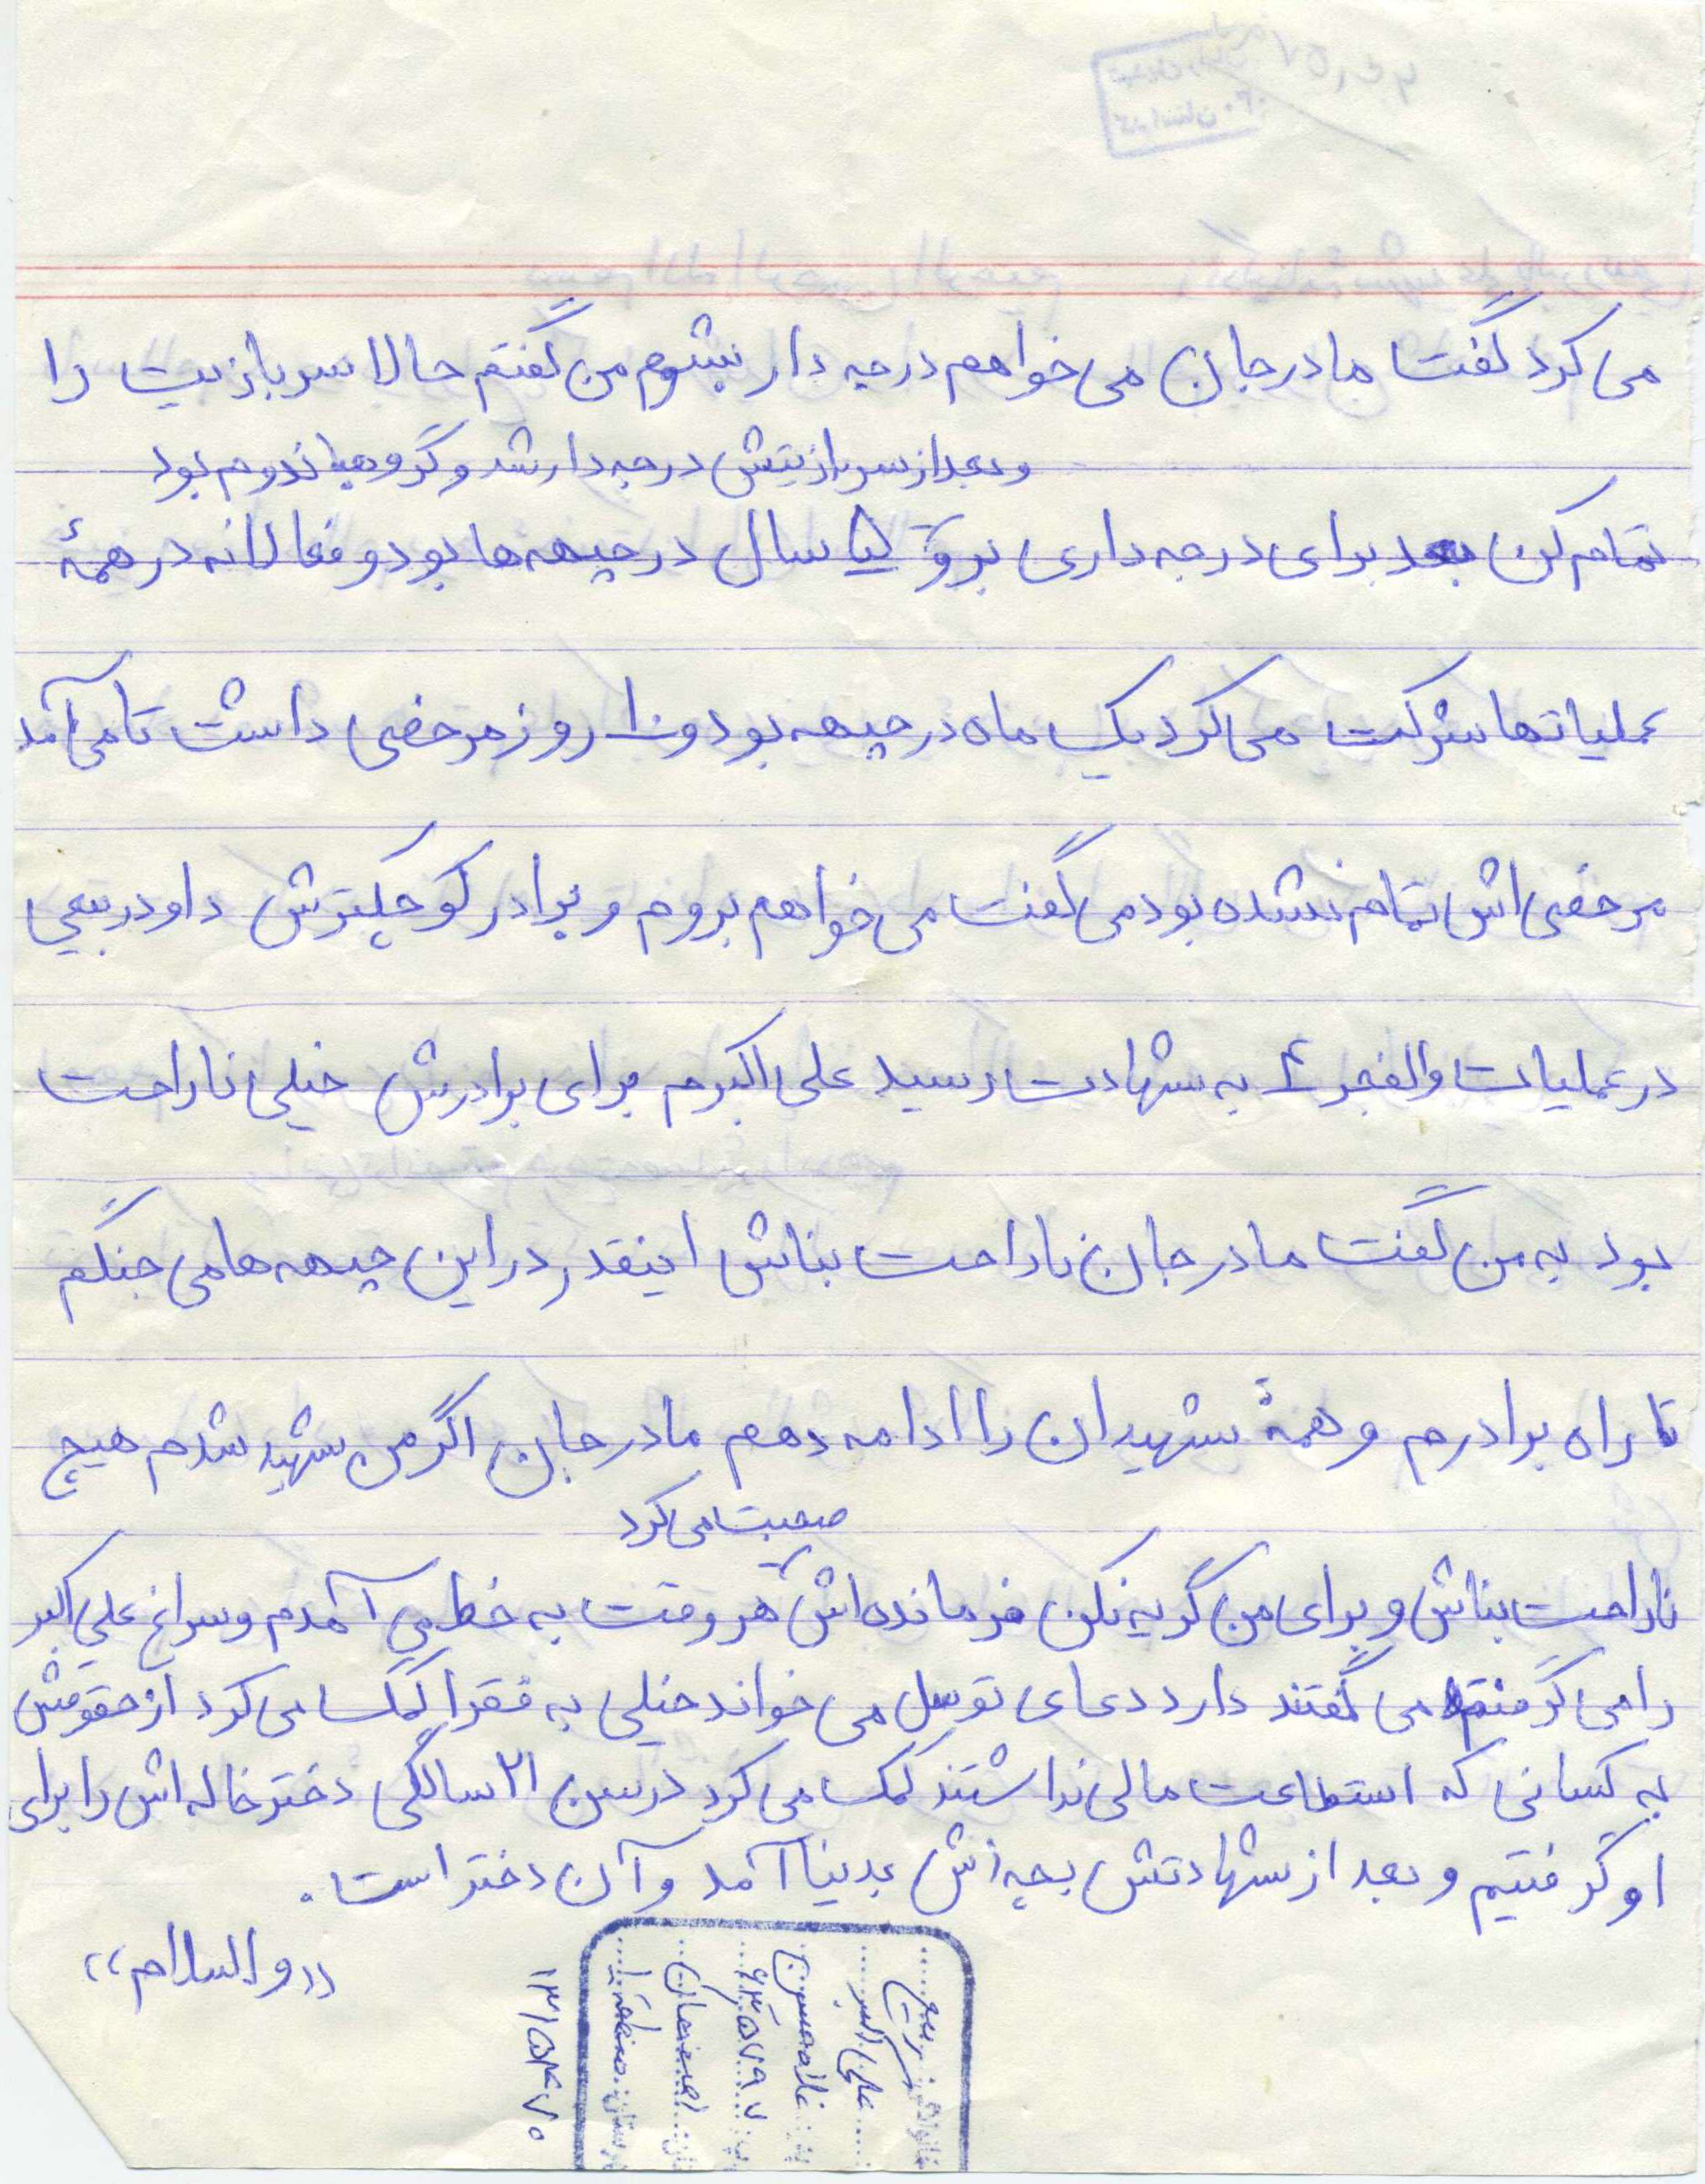 می کرد گفت مادرجان می خواهم درجه دار بشوم من گفتم حالا سربازیت را
و بعد از سربازیتش درجه دار شد و گروهبان دوم بود
تمام کن بعد برای درجه داری برو ۵ سال در جبهه ها بود و فعالانه در همهٔ
عملیاتها شرکت می کرد یک ماه در جبهه بود و ۱۰ روز مرخصی داشت تا می آمد
مرخصی اش تمام نشده بود می گفت می خواهم بروم و برادر کوچکترش داود ربیعی
در عملیات والفجر به شهادت رسید علی اکبرم برای برادرش خیلی ناراحت
بود به من گفت مادر جان ناراحت نباش اینقدر در این جبهه ها می جنگم
تا راه برادرم و همهٔ شهیدان را ادامه دهم مادر جان اگر من شهید شدم هیچ
صحبت می کرد
ناراحت نباش و برای من گریه نکن فرمانده اش هر وقت به خط می آمدم و سراغ علی اکبر
را می گرفتم می گفتند دارد دعای توسل می خواند خیلی به فقرا کمک می کرد از حقوقش
به کسانی که استطاعت مالی نداشتند کمک می کرد در سن ۲۱ سالگی دختر خاله اش را برای
او گرفتیم و بعد از شهادتش بچه اش بدنیا آمد و آن دختر است.
((والسلام))
ربیعی
علی اکبر
غلامحسین
۶۳۵۷۹۷
اصفهان
منطقه ۱
۱۳۱۵۴۷۰